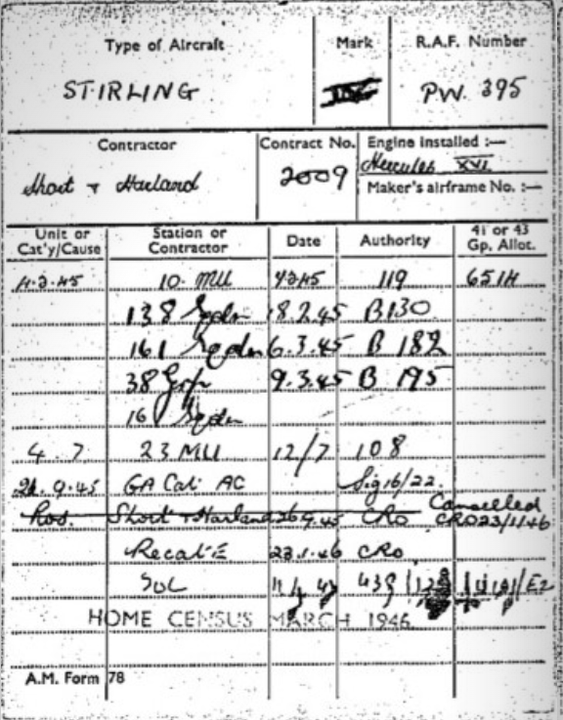 Type of Aircraft Mark R.A.F. Number
STIRLING PW. 395
Contractor Contract No. Engine installed :—
Short & Harland 2009 Hercules XVI
Maker's airframe No. :—
Unit or Cat'y/Cause Station or Contractor Date Authority 41 or 43 Gp. Allot.
4.2.45 10 MU 4.2.45 119 651H
138 Sqdn 18.2.45 B130
161 Sqdn 6.3.45 B 182
38 Grp 9.3.45 B 195
161 Sqdn
4. 7 23 MU 12/7 108
21.9.45 GA Cat AC Sig 16/22.
Ros. Short & Harland 26.9.45 CRO Cancelled CRO 23/1/46
Recat E 23.1.46 CRO
SOL
HOME CENSUS MARCH 1946
A.M. Form 78